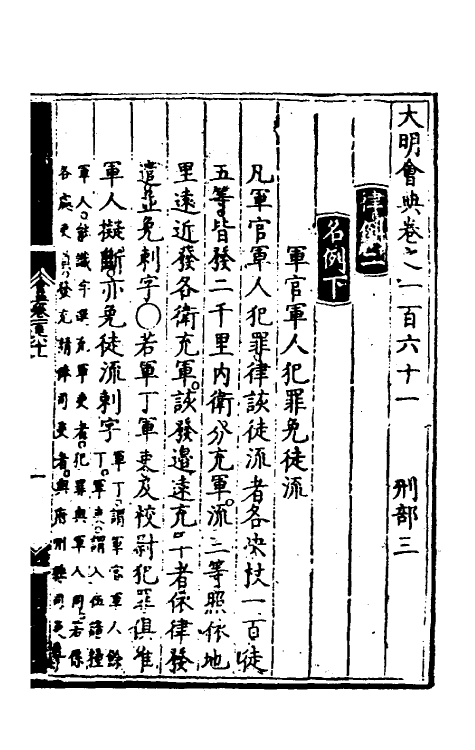 大明會典卷之一百六十一　刑部三
律例二
名例下
軍官軍人犯罪免徒流
凡軍官軍人犯罪律該徒流者各決杖一百徒
五等皆發二千里內衛分充軍流三等照依地
里遠近發各衛充軍該發邊遠充軍者依律發
遣並免刺字〇若軍丁軍吏及校尉犯罪俱准
軍人擬斷亦免徒流刺字軍丁謂軍官軍人餘
丁軍吏謂入伍請糧
軍人能識字選充軍吏者犯罪與軍人同若係
各處吏發充請俸司吏者與府州縣司吏